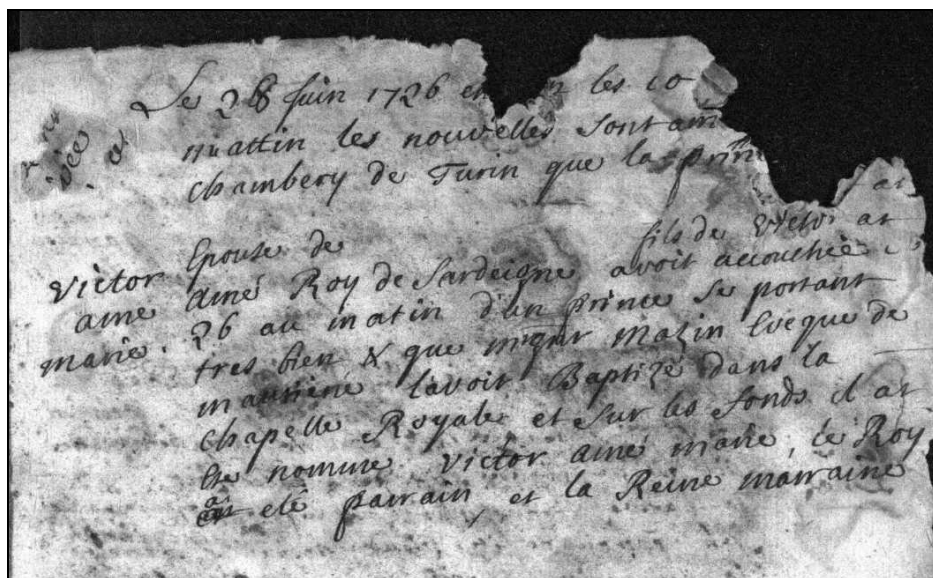 Le 28 Juin 1726 en les 10
mattin les nouvelles sont
Chambery de Turin que la prin
Epouse de fils de Victor
Victor
ame
marie.
amé Roy de Sardeigne avoit accouchée
26 au matin d'un prince se portant
tres bien & que mgnr Mazin Evêque de
maurienne l'avoit Baptizé dans la
Chapelle Royale et sur les fonds il at
ete nommé victor amé marie, le Roy
at eté parrain, et la Reine marraine